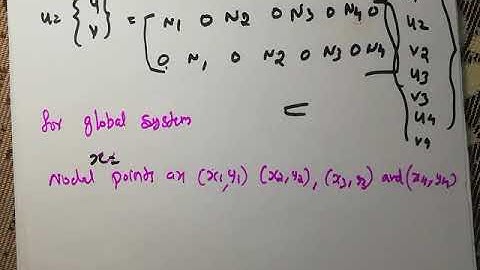 u = { u v } = [ N1 0 N2 0 N3 0 N4 0
0 N1 0 N2 0 N3 0 N4 ]
u2
v2
u3
v3
u4
v4
for global system
x=
Nodal points are (x1,y1) (x2,y2), (x3,y3) and (x4,y4)